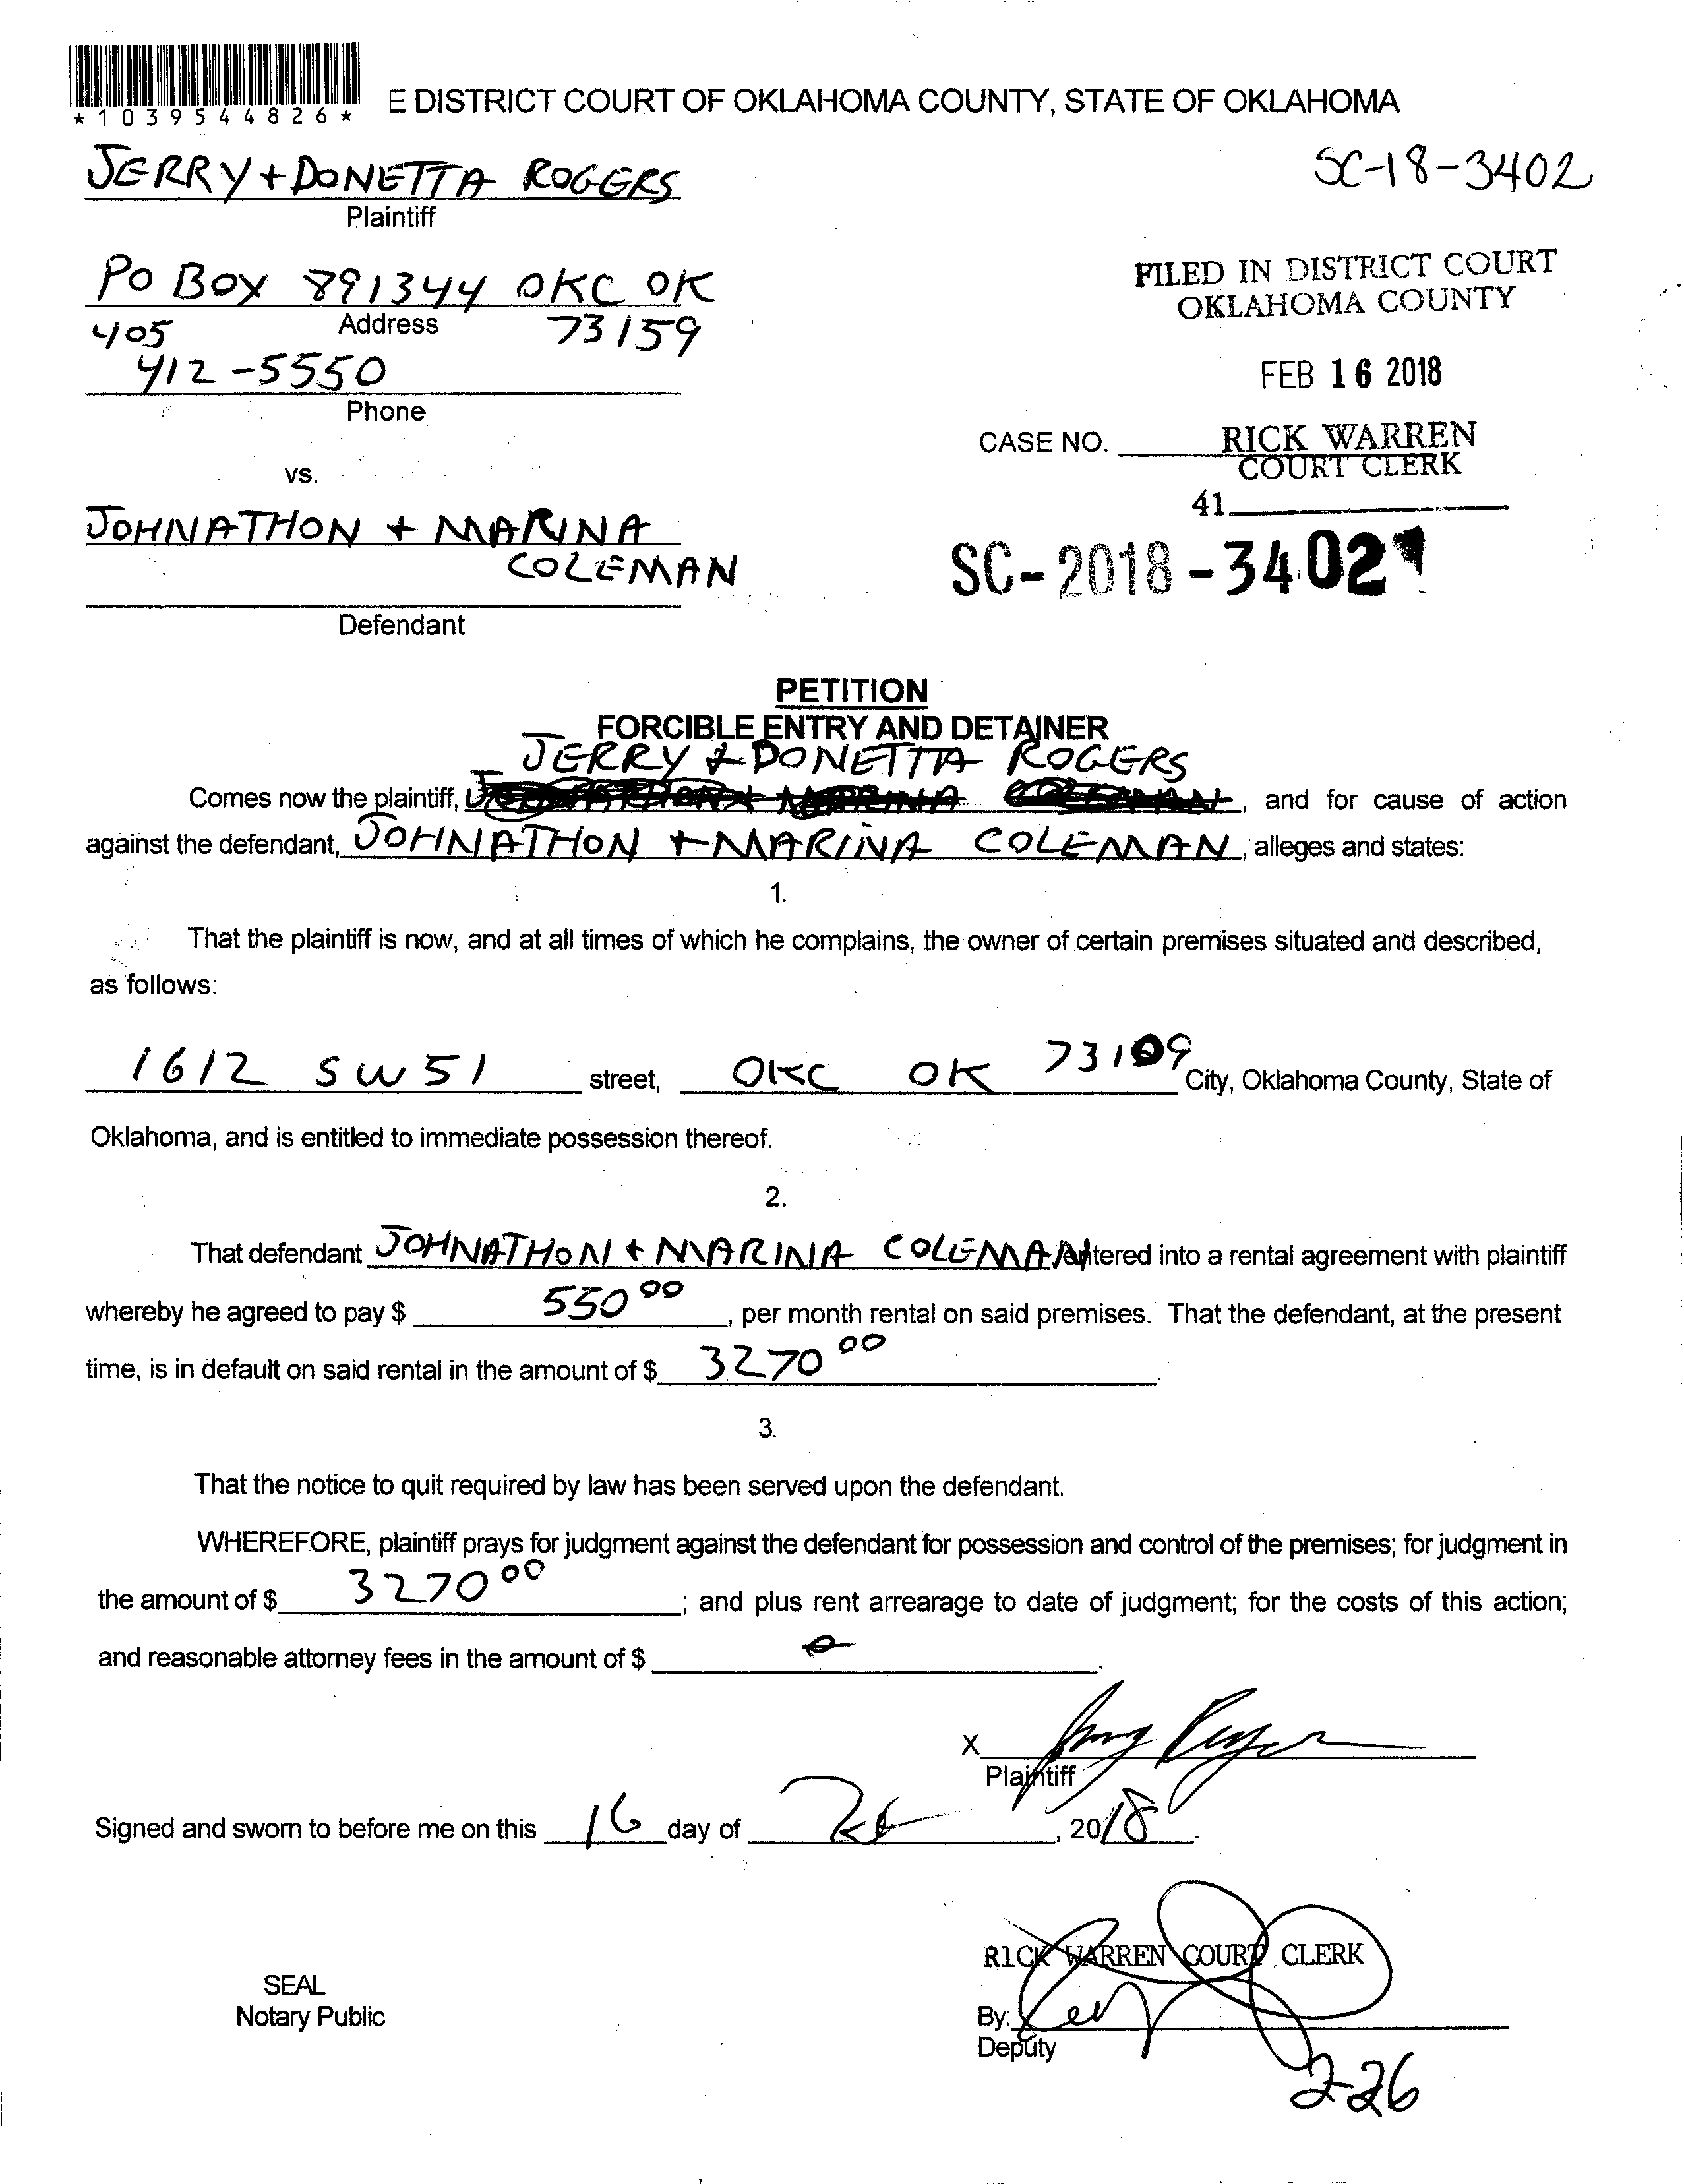 *1039544826*
E DISTRICT COURT OF OKLAHOMA COUNTY, STATE OF OKLAHOMA
JERRY + DONETTA ROGERS
SC-18-3402
Plaintiff
PO BOX 891344 OKC OK
Address
73159
405
412-5550
Phone
FILED IN DISTRICT COURT
OKLAHOMA COUNTY
FEB 16 2018
CASE NO.
RICK WARREN
COURT CLERK
41
vs.
JOHNATHON + MARINA
COLEMAN
Defendant
SC-2018-3402
PETITION
FORCIBLE ENTRY AND DETAINER
JERRY & DONETTA ROGERS
Comes now the plaintiff, , and for cause of action
against the defendant, JOHNATHON + MARINA COLEMAN, alleges and states:
1.
That the plaintiff is now, and at all times of which he complains, the owner of certain premises situated and described,
as follows:
1612 SW 51 street, OKC OK 73109 City, Oklahoma County, State of
Oklahoma, and is entitled to immediate possession thereof.
2.
That defendant JOHNATHON + MARINA COLEMAN entered into a rental agreement with plaintiff
whereby he agreed to pay $ 550 00, per month rental on said premises. That the defendant, at the present
time, is in default on said rental in the amount of $ 3270 00.
3.
That the notice to quit required by law has been served upon the defendant.
WHEREFORE, plaintiff prays for judgment against the defendant for possession and control of the premises; for judgment in
the amount of $ 3270 00; and plus rent arrearage to date of judgment; for the costs of this action;
and reasonable attorney fees in the amount of $ 0.
X
Plaintiff
Signed and sworn to before me on this 16 day of , 2018.
RICK WARREN COURT CLERK
SEAL
Notary Public
By:
Deputy
2-26